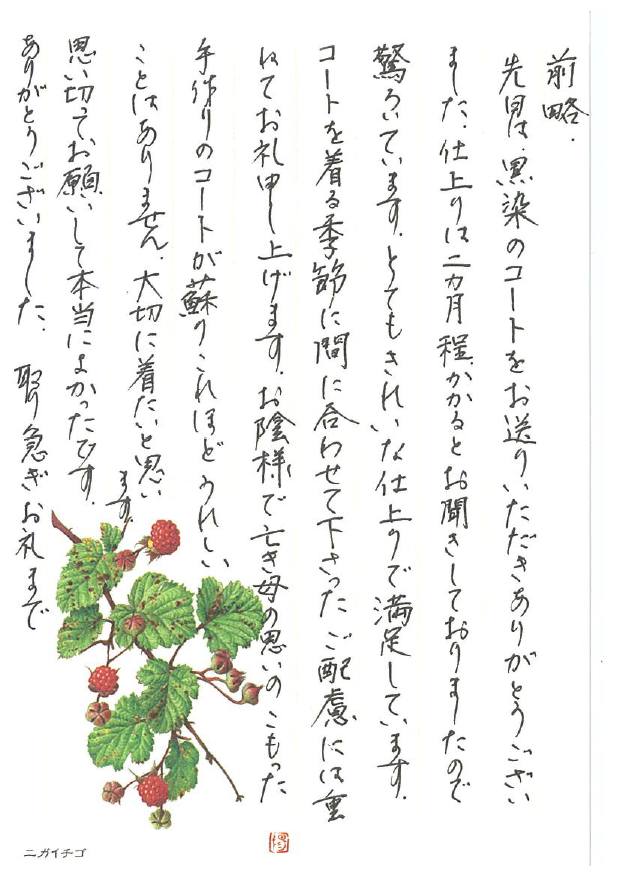 前略.
先日は、黒染のコートをお送りいただきありがとうござい
ました. 仕上りは二カ月程かかるとお聞きしておりましたので
驚ろいています. とてもきれいな仕上りで満足しています.
コートを着る季節に間に合わせて下さったご配慮には重
ねてお礼申し上げます. お陰様で亡き母の思いのこもった
手作りのコートが蘇りこれほどうれしい
ことはありません. 大切に着たいと思い
ます.
思い切ってお願いして本当によかったです.
ありがとうございました. 取り急ぎお礼まで
ニガイチゴ